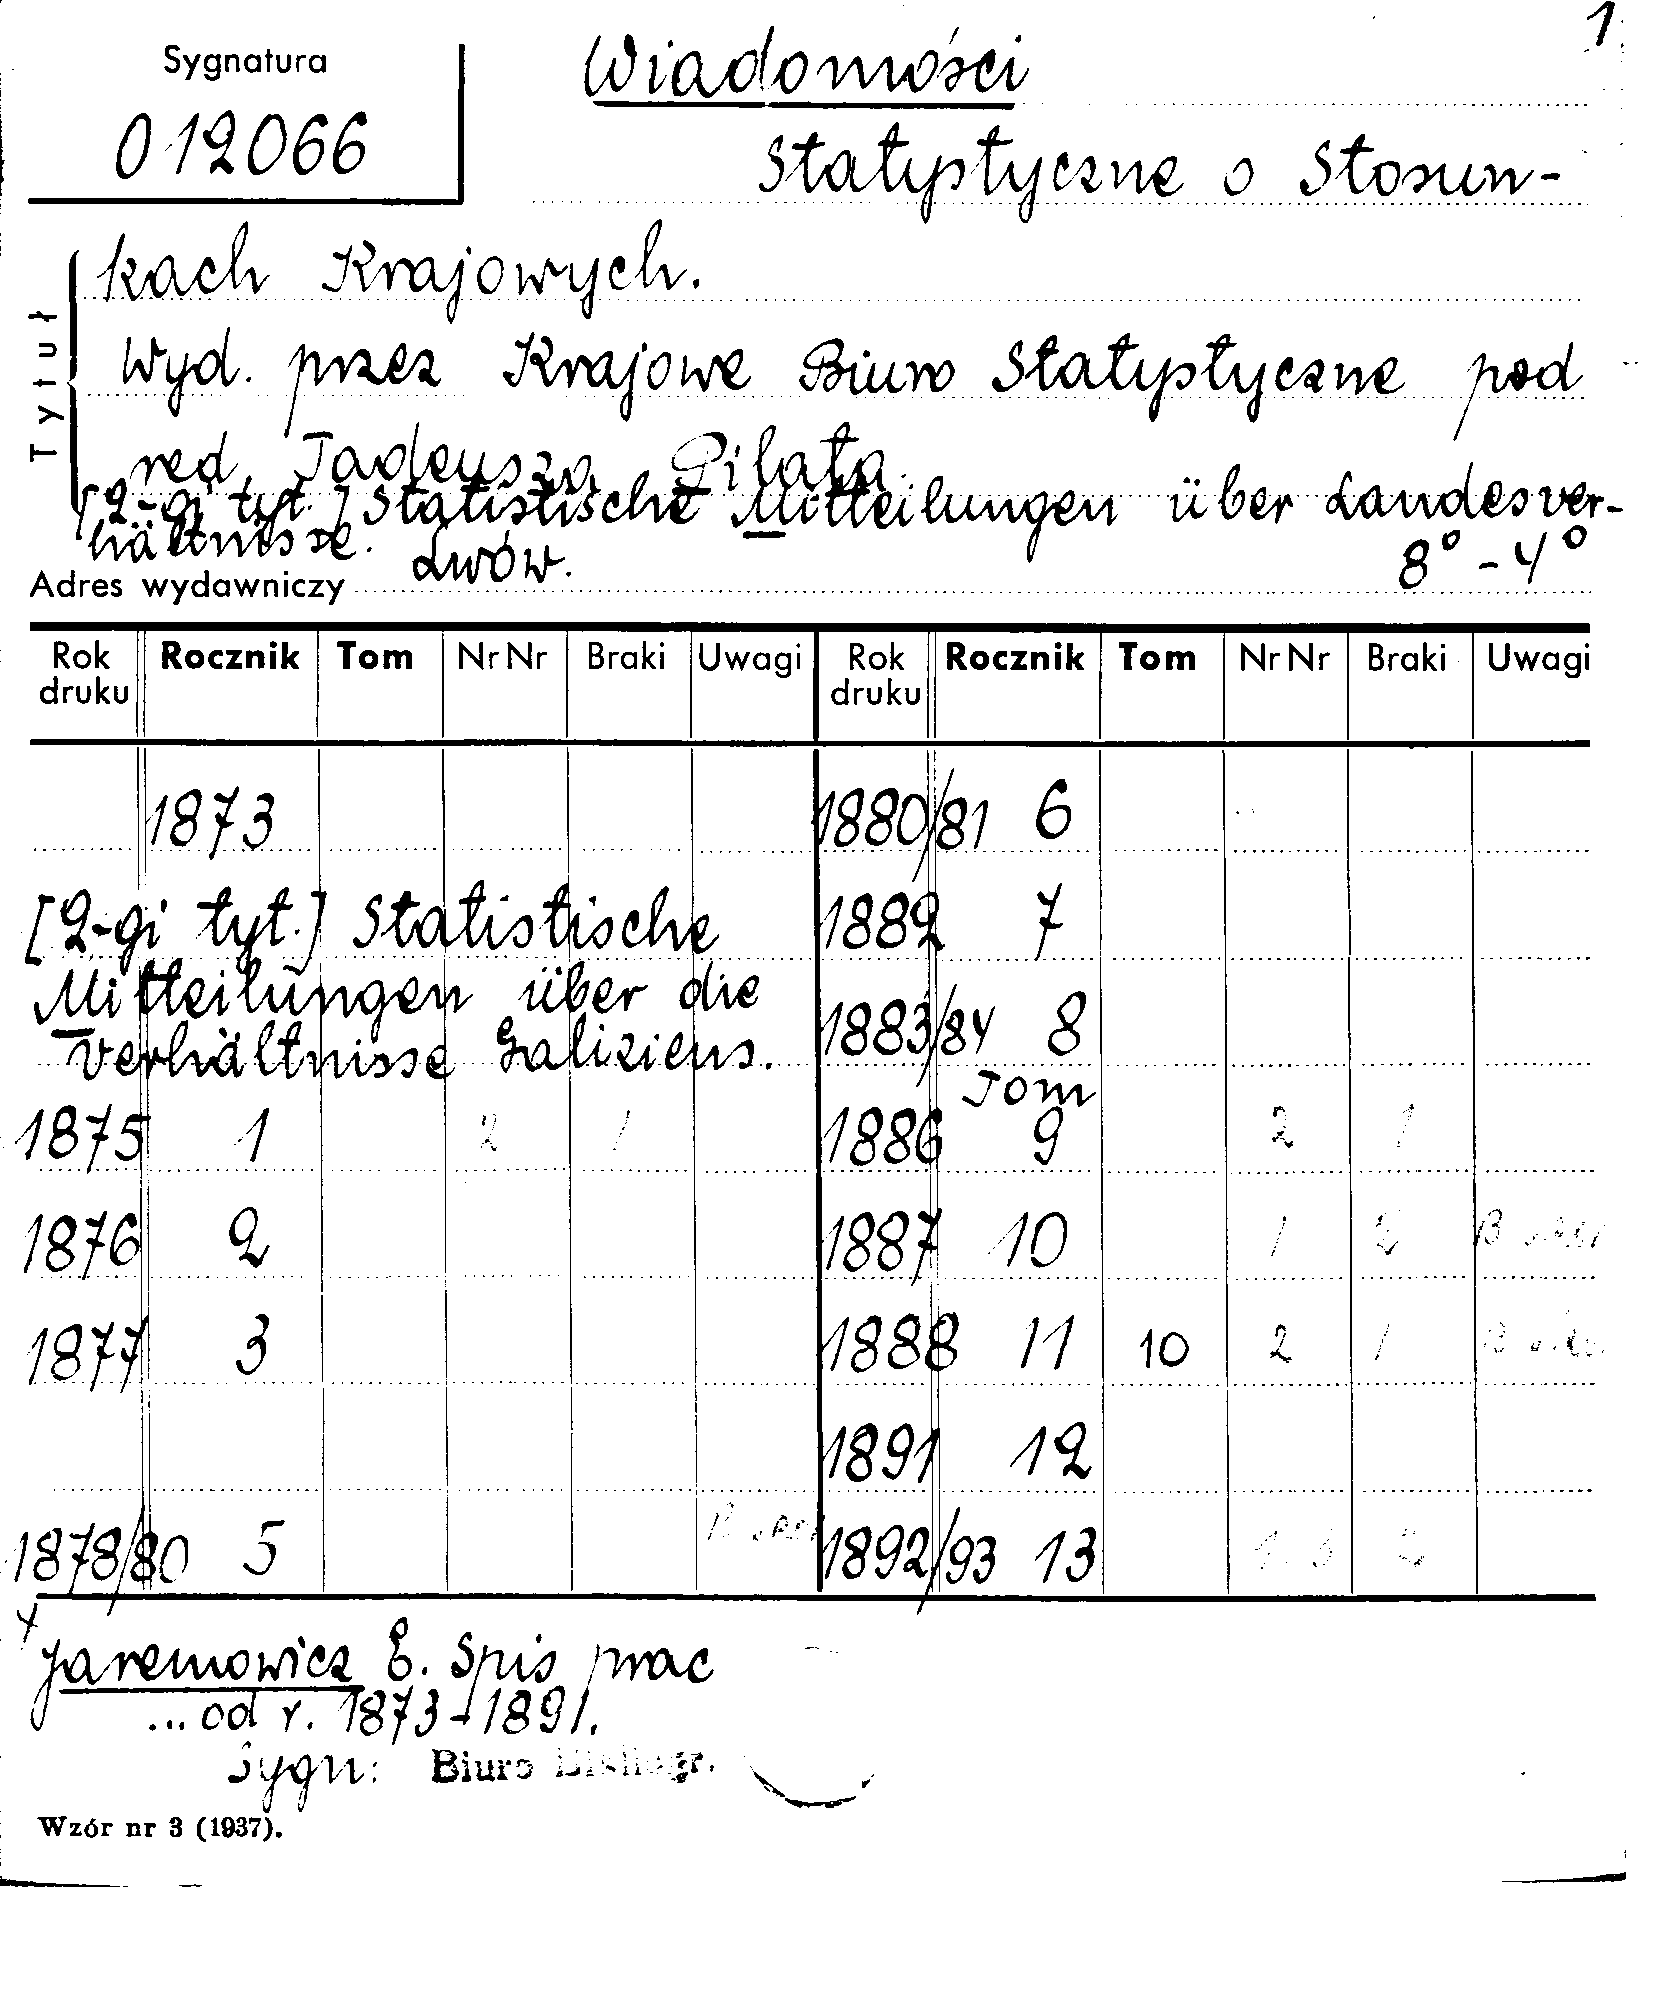 1
Sygnatura
012066
Wiadomości
Statystyczne o Stosun-
kach Krajowych.
Wyd. przez Krajowe Biuro Statystyczne pod
red. Tadeusza Pilata.
[2-gi tyt.] Statistische Mitteilungen über Landesver-
hältnisse.
Tytuł
Adres wydawniczy Lwów. 8° - 4°
Rok druku Rocznik Tom Nr Nr Braki Uwagi Rok druku Rocznik Tom Nr Nr Braki Uwagi
1873 1880/81 6
[2-gi tyt.] Statistische 1882 7
Mitteilungen über die
Verhältnisse Galiziens. 1883/84 8
Tom
1875 1 2 1 1886 9 2 1
1876 2 1887 10 1 2
1877 3 1888 11 10 2 1
1891 12
1878/80 5 1892/93 13
Jaremowicz E. Spis prac
... od r. 1873-1891.
Sygn: Biuro Bibliogr.
Wzór nr 3 (1937).